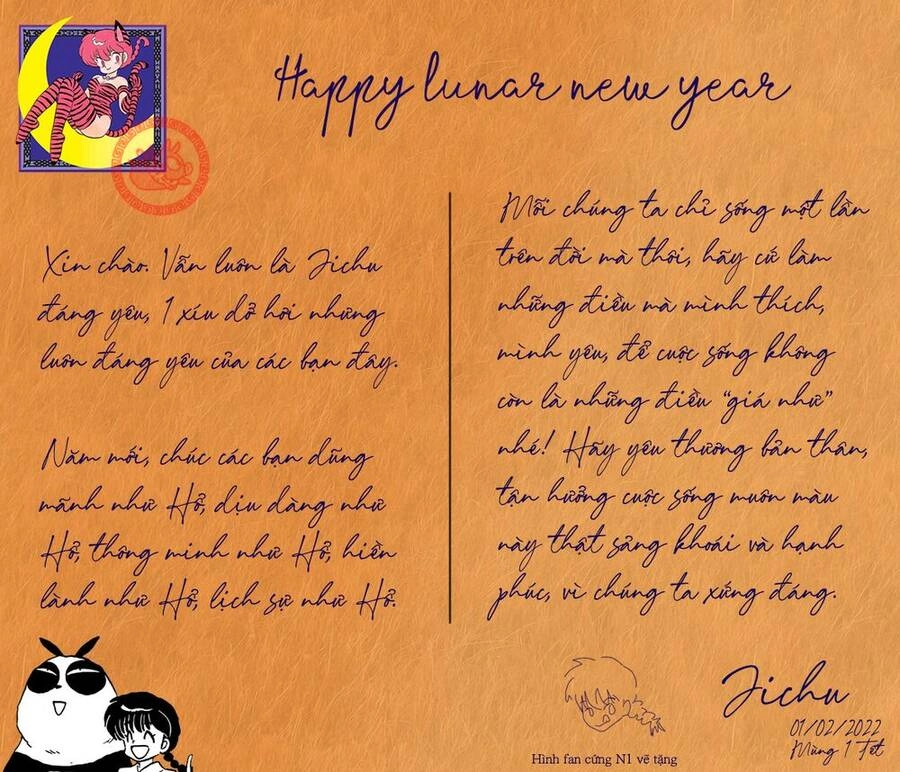 Happy lunar new year
Xin chào. Vẫn luôn là Jichu
đáng yêu, 1 xíu dở hơi nhưng
luôn đáng yêu của các bạn đây.
Năm mới, chúc các bạn dũng
mãnh như Hổ, dịu dàng như
Hổ, thông minh như Hổ, hiền
lành như Hổ, lịch sự như Hổ.
Mỗi chúng ta chỉ sống một lần
trên đời mà thôi, hãy cứ làm
những điều mà mình thích,
mình yêu, để cuộc sống không
còn là những điều “giá như”
nhé! Hãy yêu thương bản thân,
tận hưởng cuộc sống muôn màu
này thật sảng khoái và hạnh
phúc, vì chúng ta xứng đáng.
Jichu
01/02/2022
Mùng 1 Tết
Hình fan cứng N1 vẽ tặng